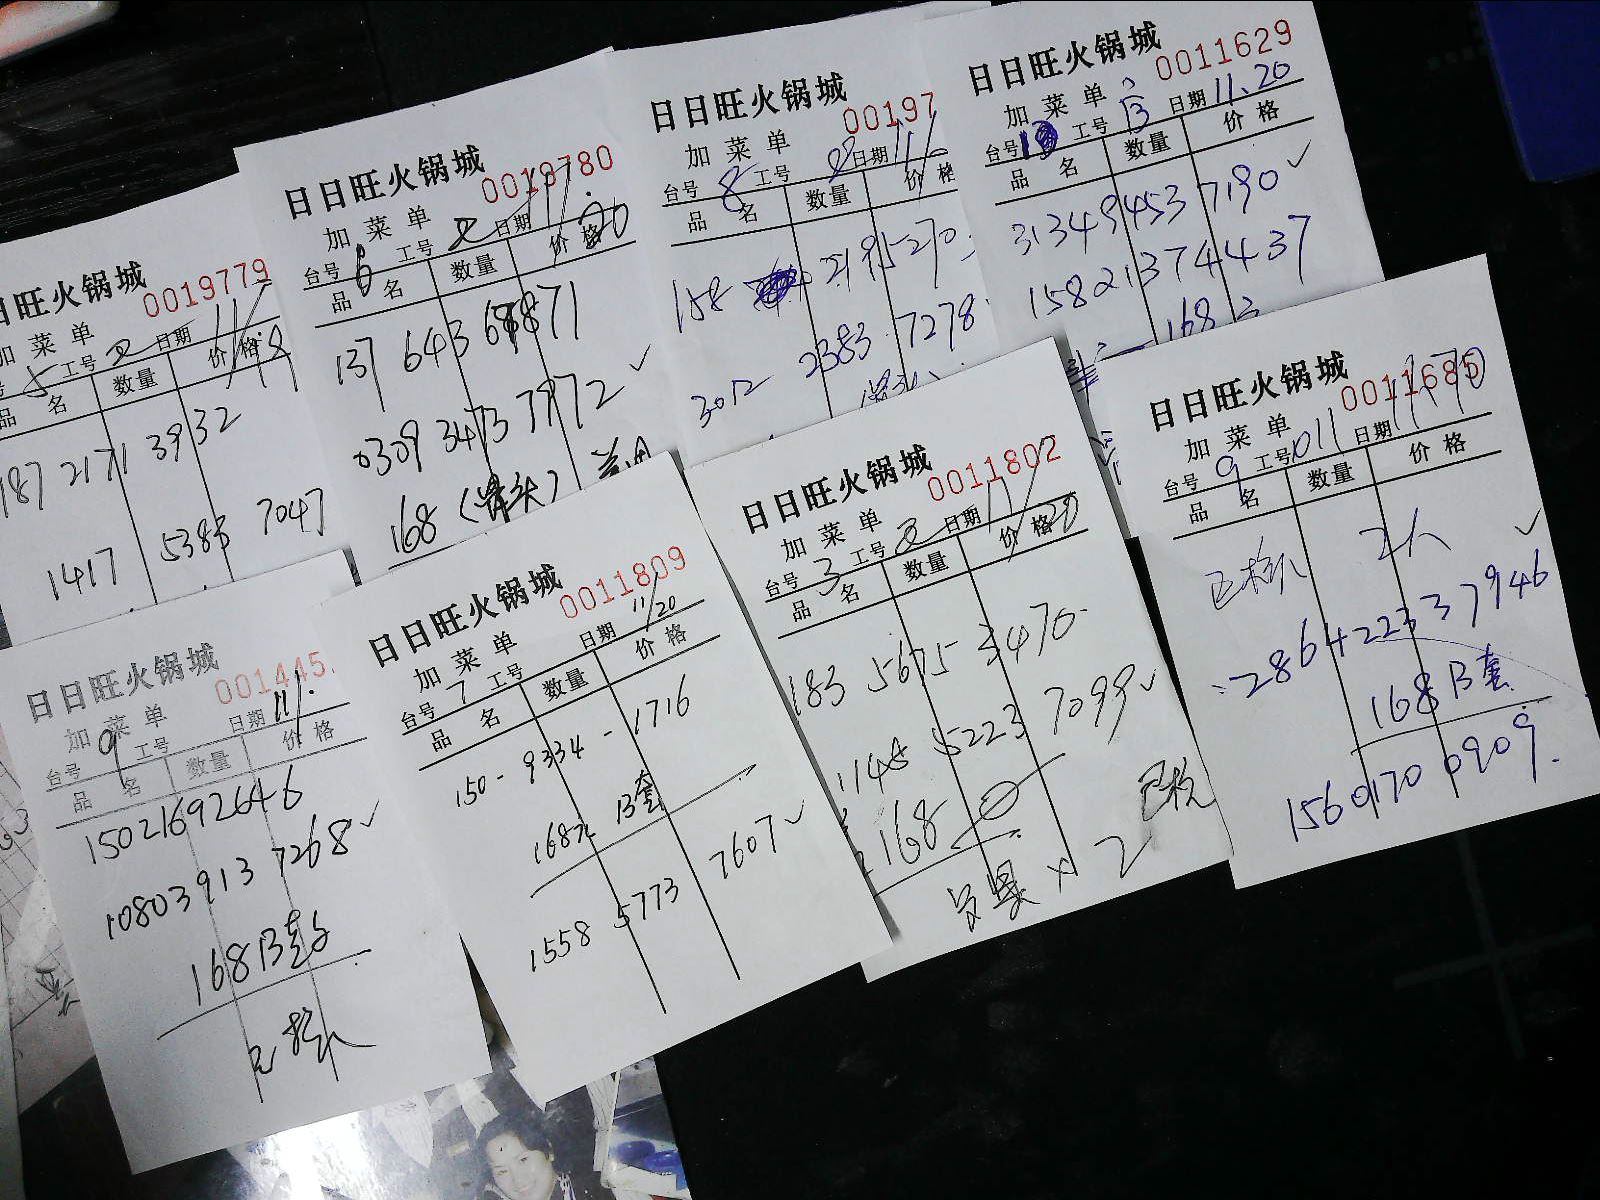 日日旺火锅城
0019779
加菜单
工号
日期
品名
数量
价格
187 2171 3932
1417 5383 7047
日日旺火锅城
0019780
加菜单
台号 6 工号 日期 11/20
品名 数量 价格
0309 3473 7972
168（骨头）
日日旺火锅城
00197
加菜单
台号 8 工号 日期 11/
品名 数量 价格
158 2195270
3012 2383 7278
日日旺火锅城
0011629
加菜单
台号 工号 日期 11.20
品名 数量 价格
31349453 7190
15821374437
168
日日旺火锅城
001445
加菜单
台号 9 工号 日期 11/
品名 数量 价格
15021692646
10803913 7268
168B套
日日旺火锅城
0011809
加菜单
台号 7 工号 日期 11/20
品名 数量 价格
150-9334-1716
168元 B套
1558 5773 7607
日日旺火锅城
0011802
加菜单
台号 3 工号 日期 11/20
品名 数量 价格
183 5675 3470
1148 5223 7099
168
×2
日日旺火锅城
0011685
加菜单
台号 9 工号 011 日期
品名 数量 价格
2人
28642233 7946
168B套
15601700909